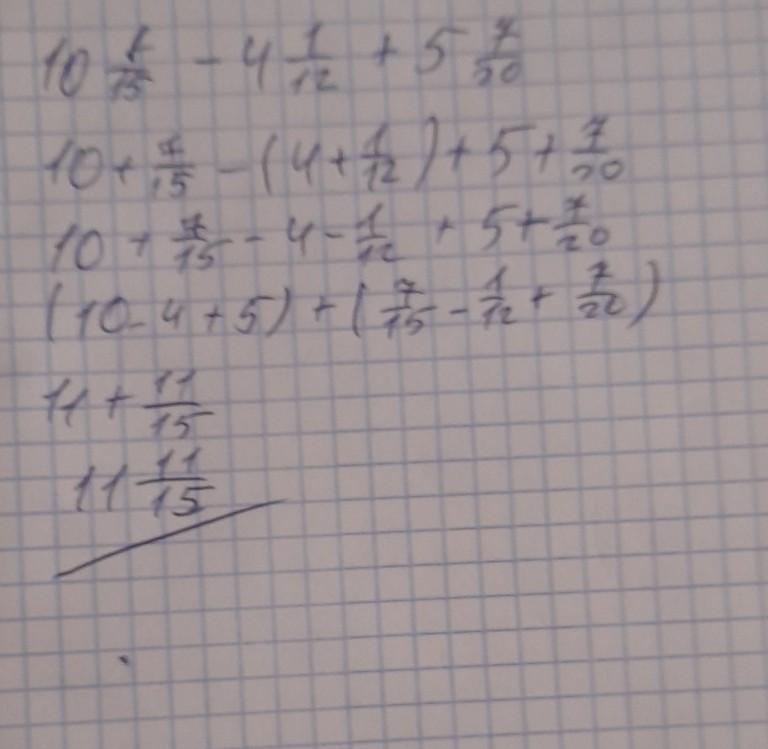 10 7/15 - 4 1/12 + 5 7/20
10 + 7/15 - (4 + 1/12) + 5 + 7/20
10 + 7/15 - 4 - 1/12 + 5 + 7/20
(10 - 4 + 5) + (7/15 - 1/12 + 7/20)
11 + 11/15
11 11/15